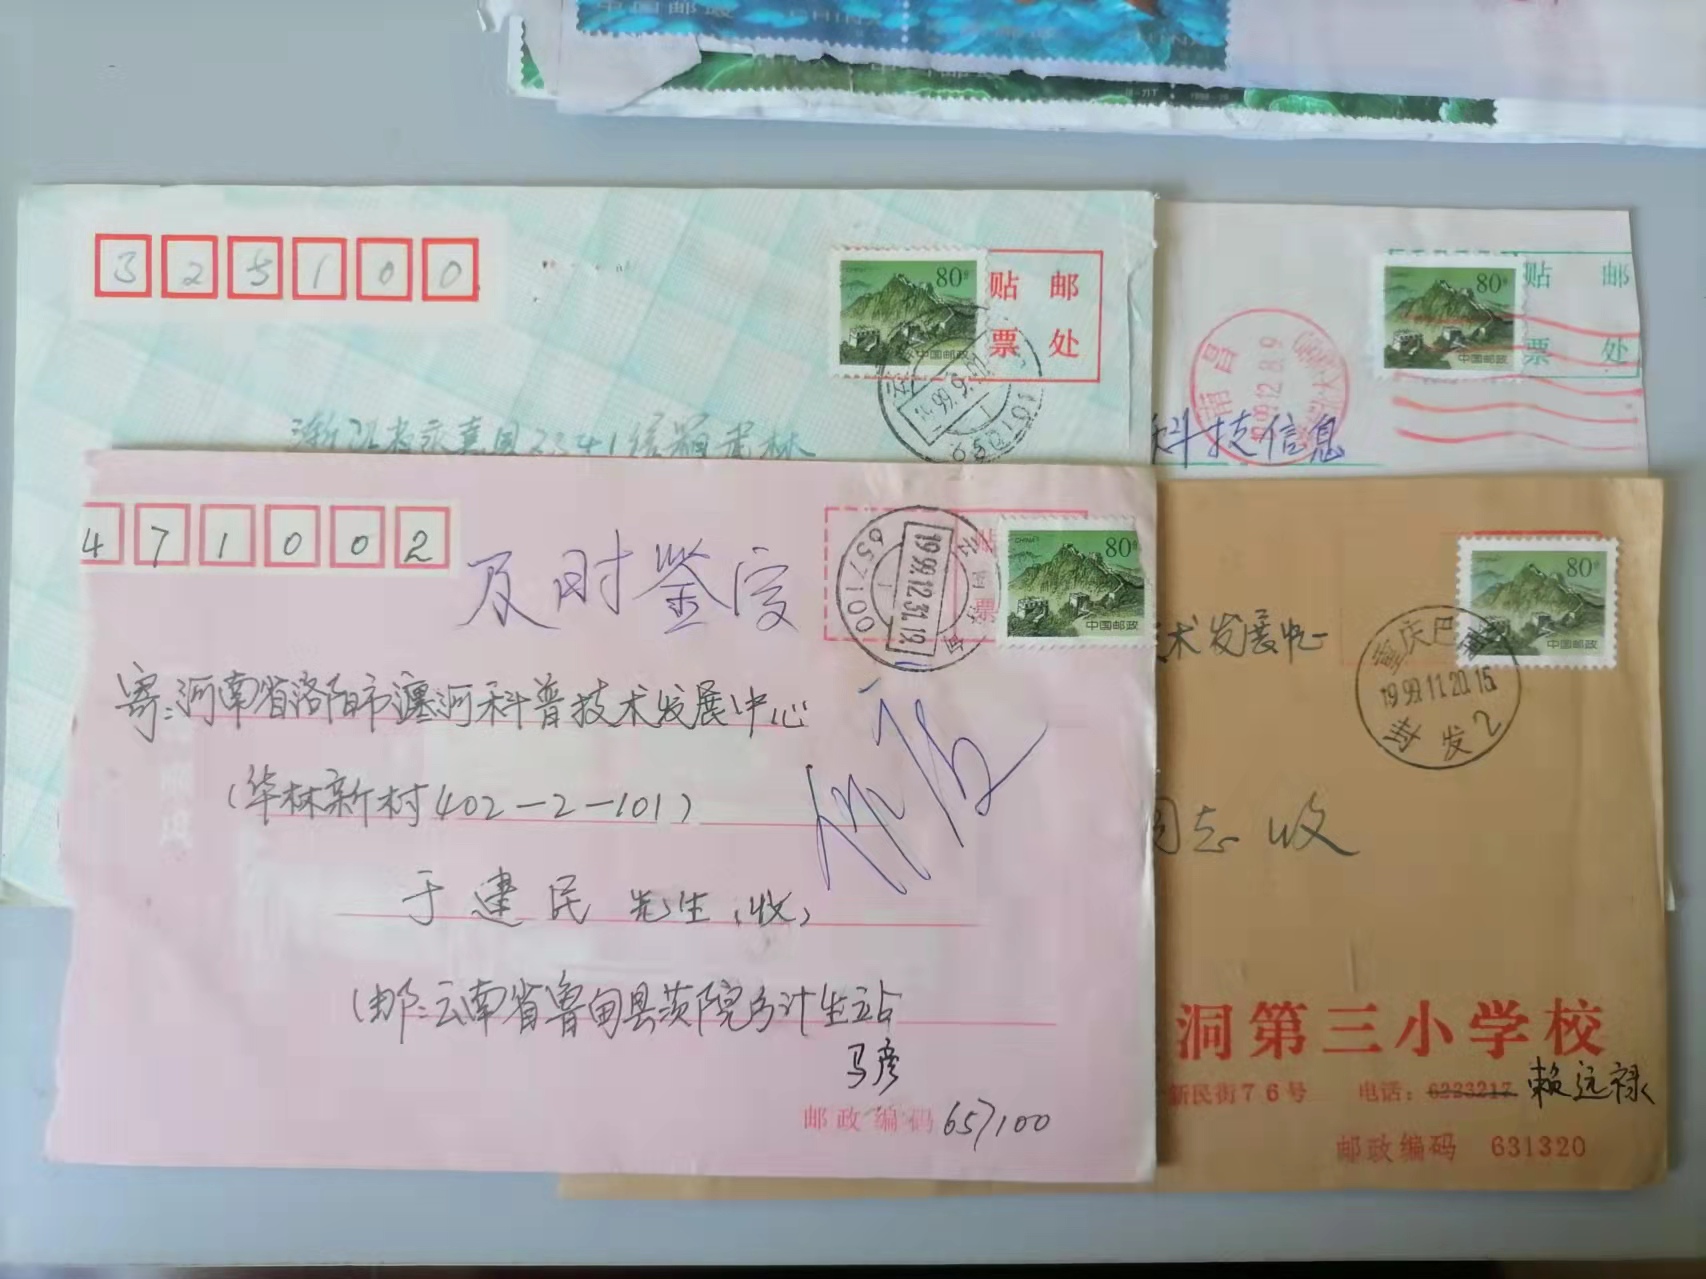 中国邮政
CHINA
325100
80分
中国邮政
贴 邮
票 处
80分
中国邮政
贴 邮
票 处
南昌
1999.12.8.9
科技信息
471002
及时鉴定
657100
1999.12.31.19
CHINA
80分
中国邮政
寄:河南省洛阳市瀍河科普技术发展中心
(华林新村402-2-101)
于建民 先生(收)
(邮:云南省鲁甸县茨院乡计生站
马彦
邮政编码 657100
术发展中心
80分
中国邮政
重庆巴
1999.11.20.15
封发2
同志收
洞第三小学校
新民街76号 电话:6223217 赖远禄
邮政编码 631320